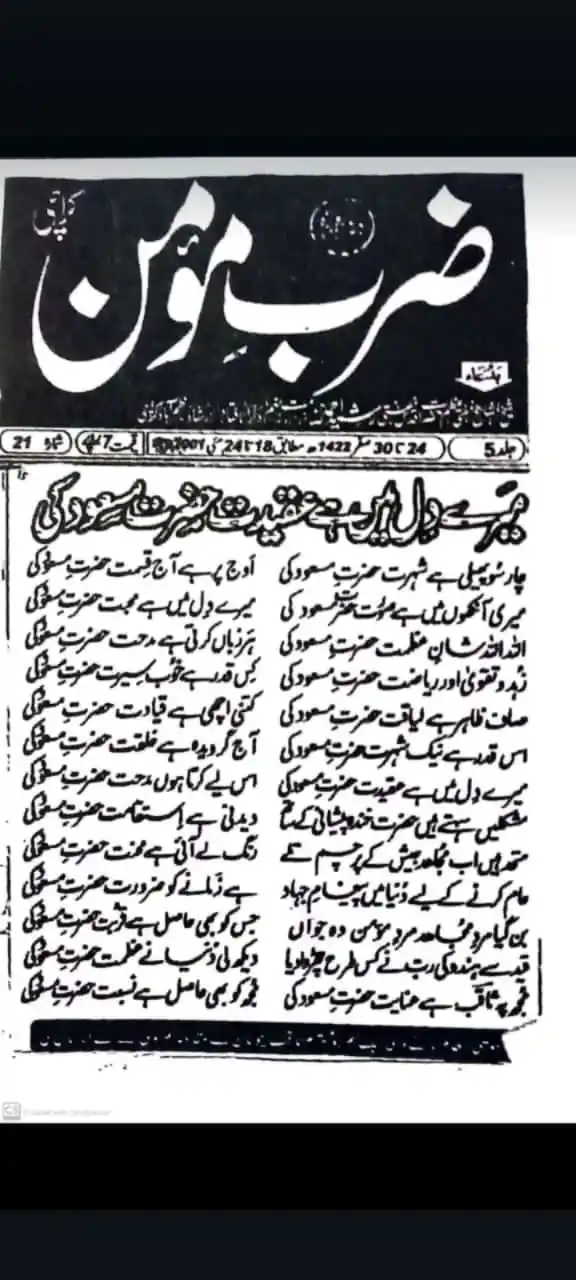 کراچی
ضربِ مؤمن
جلد 5
24 تا 30 صفر 1422ھ مطابق 18 تا 24 مئی 2001ء
قیمت 7 روپے
شمارہ 21
میرے دل میں ہے عقیدت حضرت مسعود کی
چار سو پھیلی ہے شہرت حضرتِ مسعود کی اوج پر ہے آج قسمت حضرتِ مسعود کی
میری آنکھوں میں ہے صورت حضرتِ مسعود کی میرے دل میں ہے محبت حضرتِ مسعود کی
اللہ اللہ شانِ عظمت حضرتِ مسعود کی ہر زباں کرتی ہے مدحت حضرتِ مسعود کی
زہد و تقویٰ اور ریاضت حضرتِ مسعود کی کس قدر ہے خوب سیرت حضرتِ مسعود کی
صاف ظاہر ہے لیاقت حضرتِ مسعود کی کتنی اچھی ہے قیادت حضرتِ مسعود کی
اس قدر ہے نیک شہرت حضرتِ مسعود کی آج گرویدہ ہے خلقت حضرتِ مسعود کی
میرے دل میں ہے عقیدت حضرتِ مسعود کی اس لیے کرتا ہوں مدحت حضرتِ مسعود کی
مشکلیں سہتے ہیں حضرت خندہ پیشانی کے ساتھ دیدنی ہے استقامت حضرتِ مسعود کی
متحد ہیں اب مجاہد جیش کے پرچم تلے رنگ لے آئی ہے محنت حضرتِ مسعود کی
عام کرنے کے لیے دنیا میں پیغامِ جہاد ہے زمانے کو ضرورت حضرتِ مسعود کی
بن گیا مردِ مجاہد مردِ مؤمن وہ جواں جس کو بھی حاصل ہے قربت حضرتِ مسعود کی
قید سے ہندو کی رب نے کس طرح چھڑوا دیا دیکھ لی دنیا نے عظمت حضرتِ مسعود کی
مجھ پہ ثاقب ہے عنایت حضرتِ مسعود کی مجھ کو بھی حاصل ہے نسبت حضرتِ مسعود کی
CS